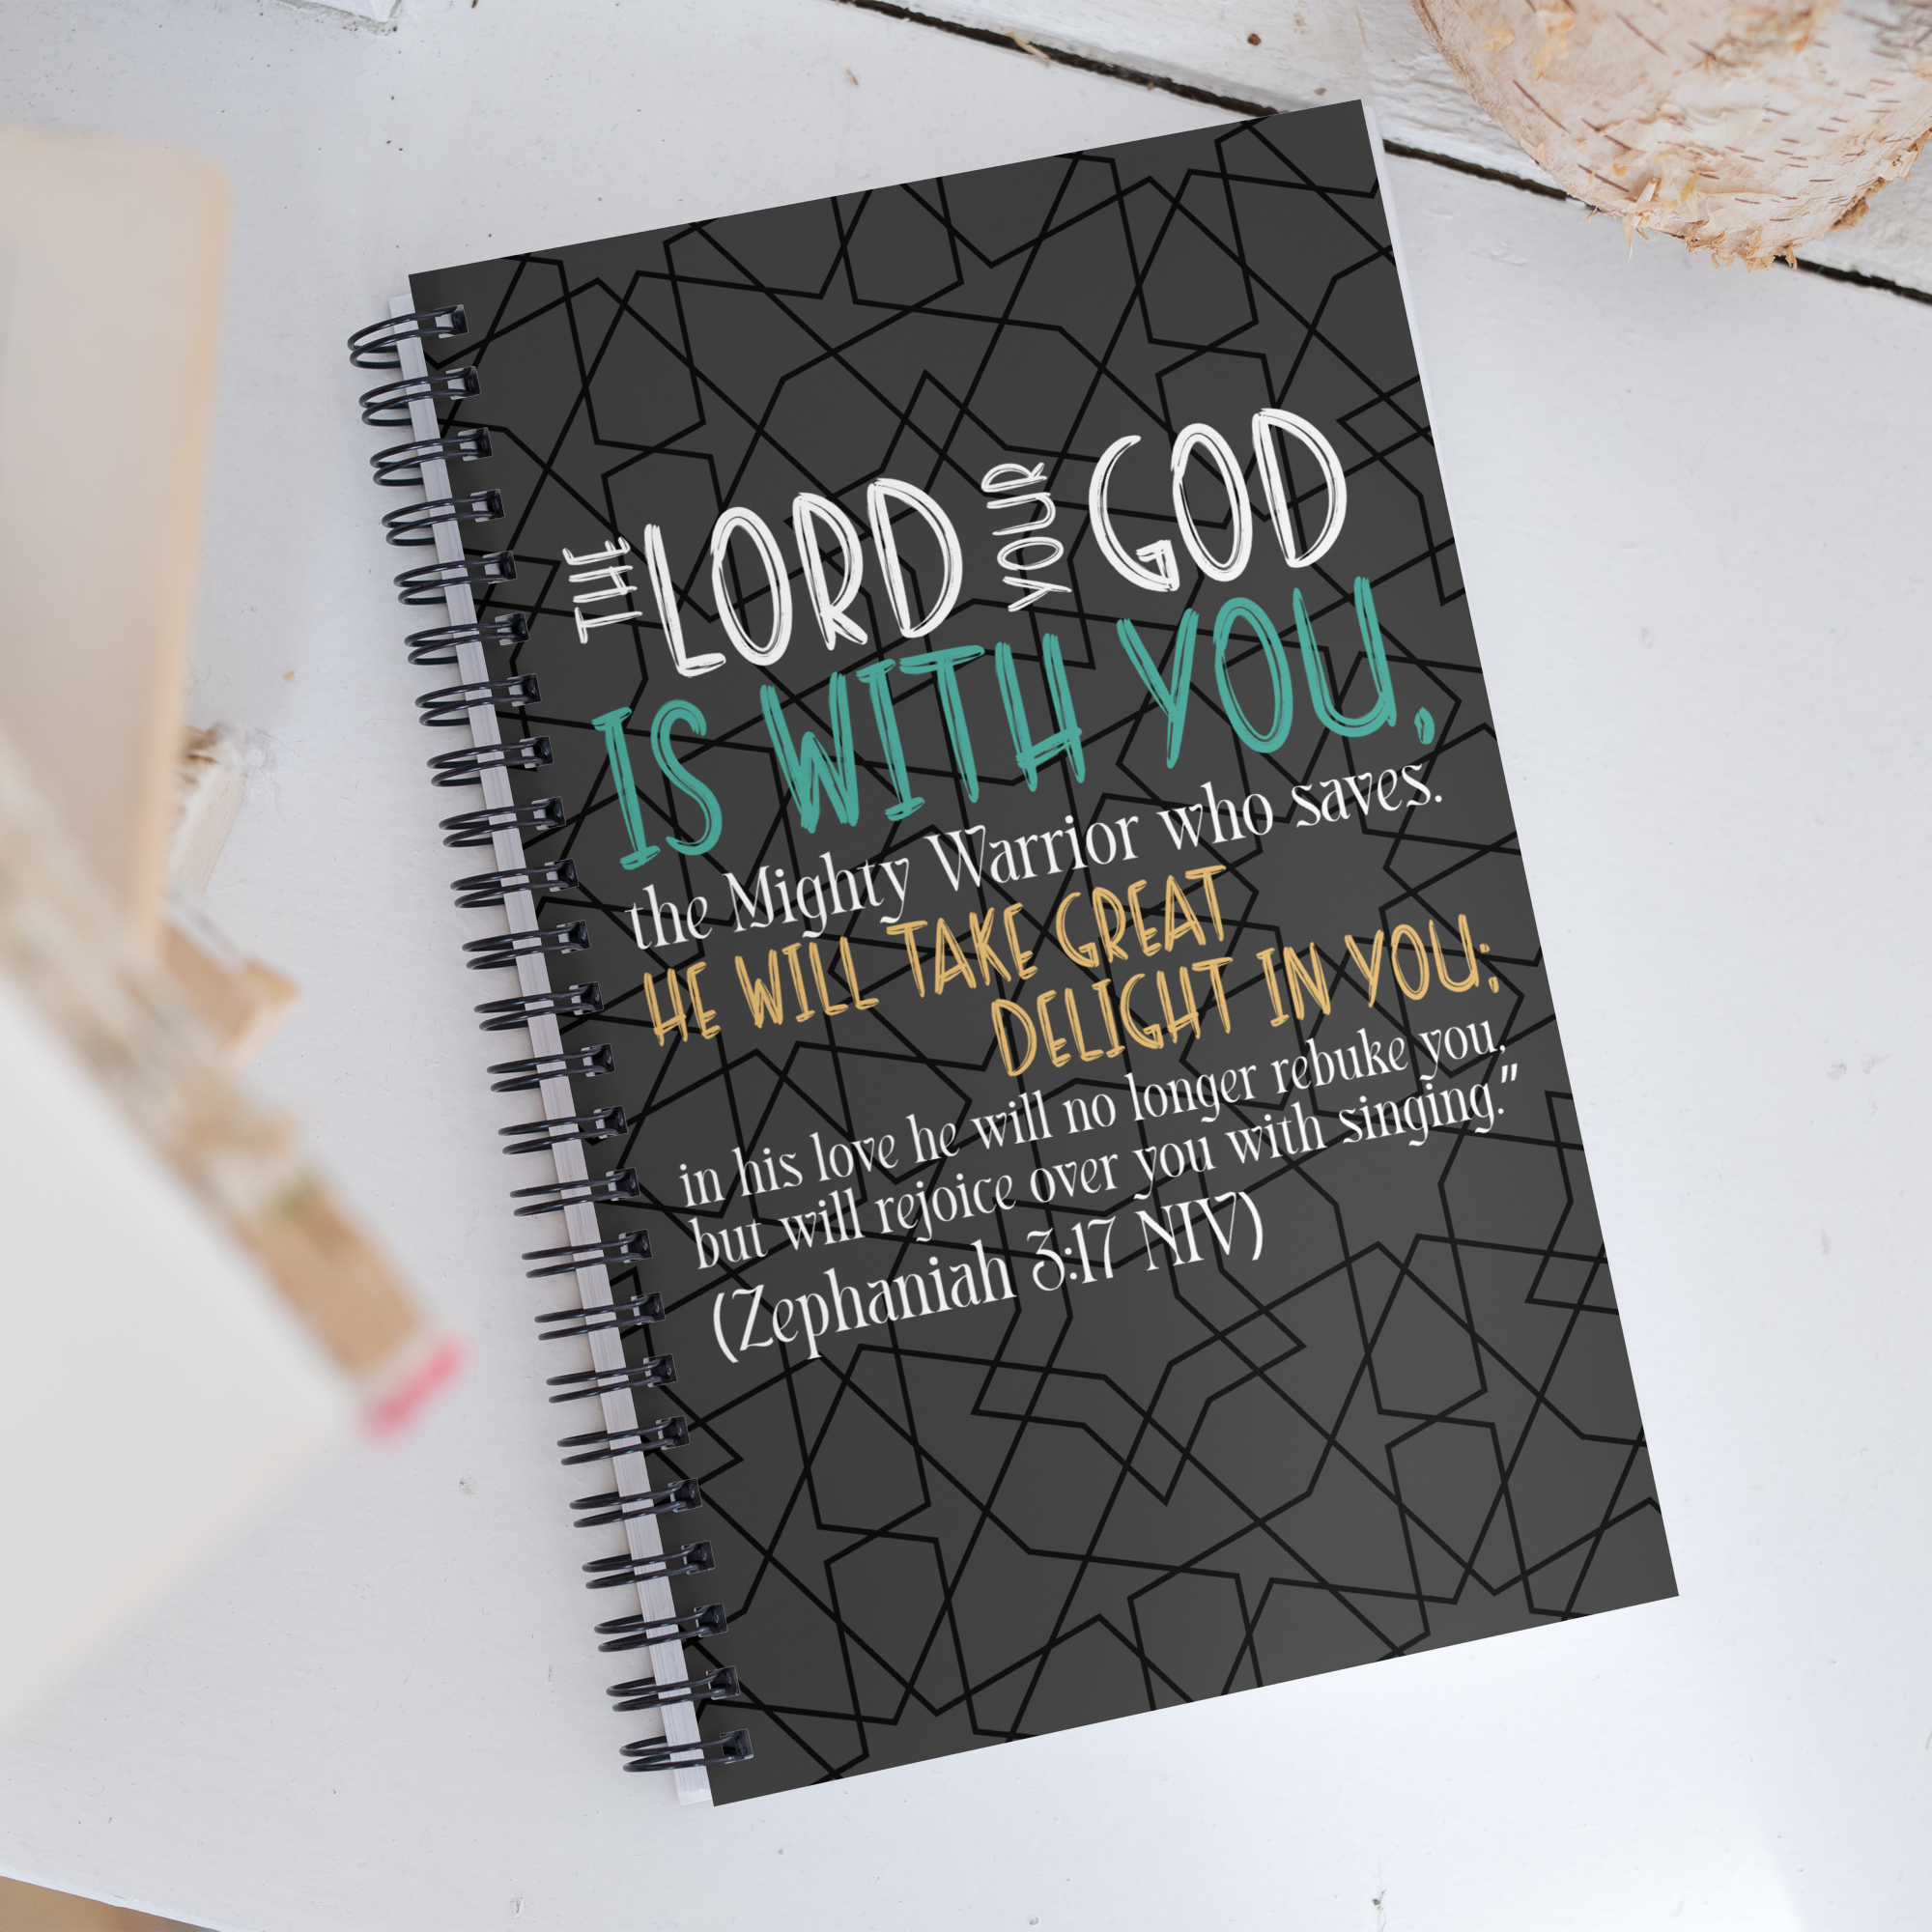 THE LORD YOUR GOD
IS WITH YOU,
the Mighty Warrior who saves.
HE WILL TAKE GREAT
DELIGHT IN YOU;
in his love he will no longer rebuke you,
but will rejoice over you with singing."
(Zephaniah 3:17 NIV)